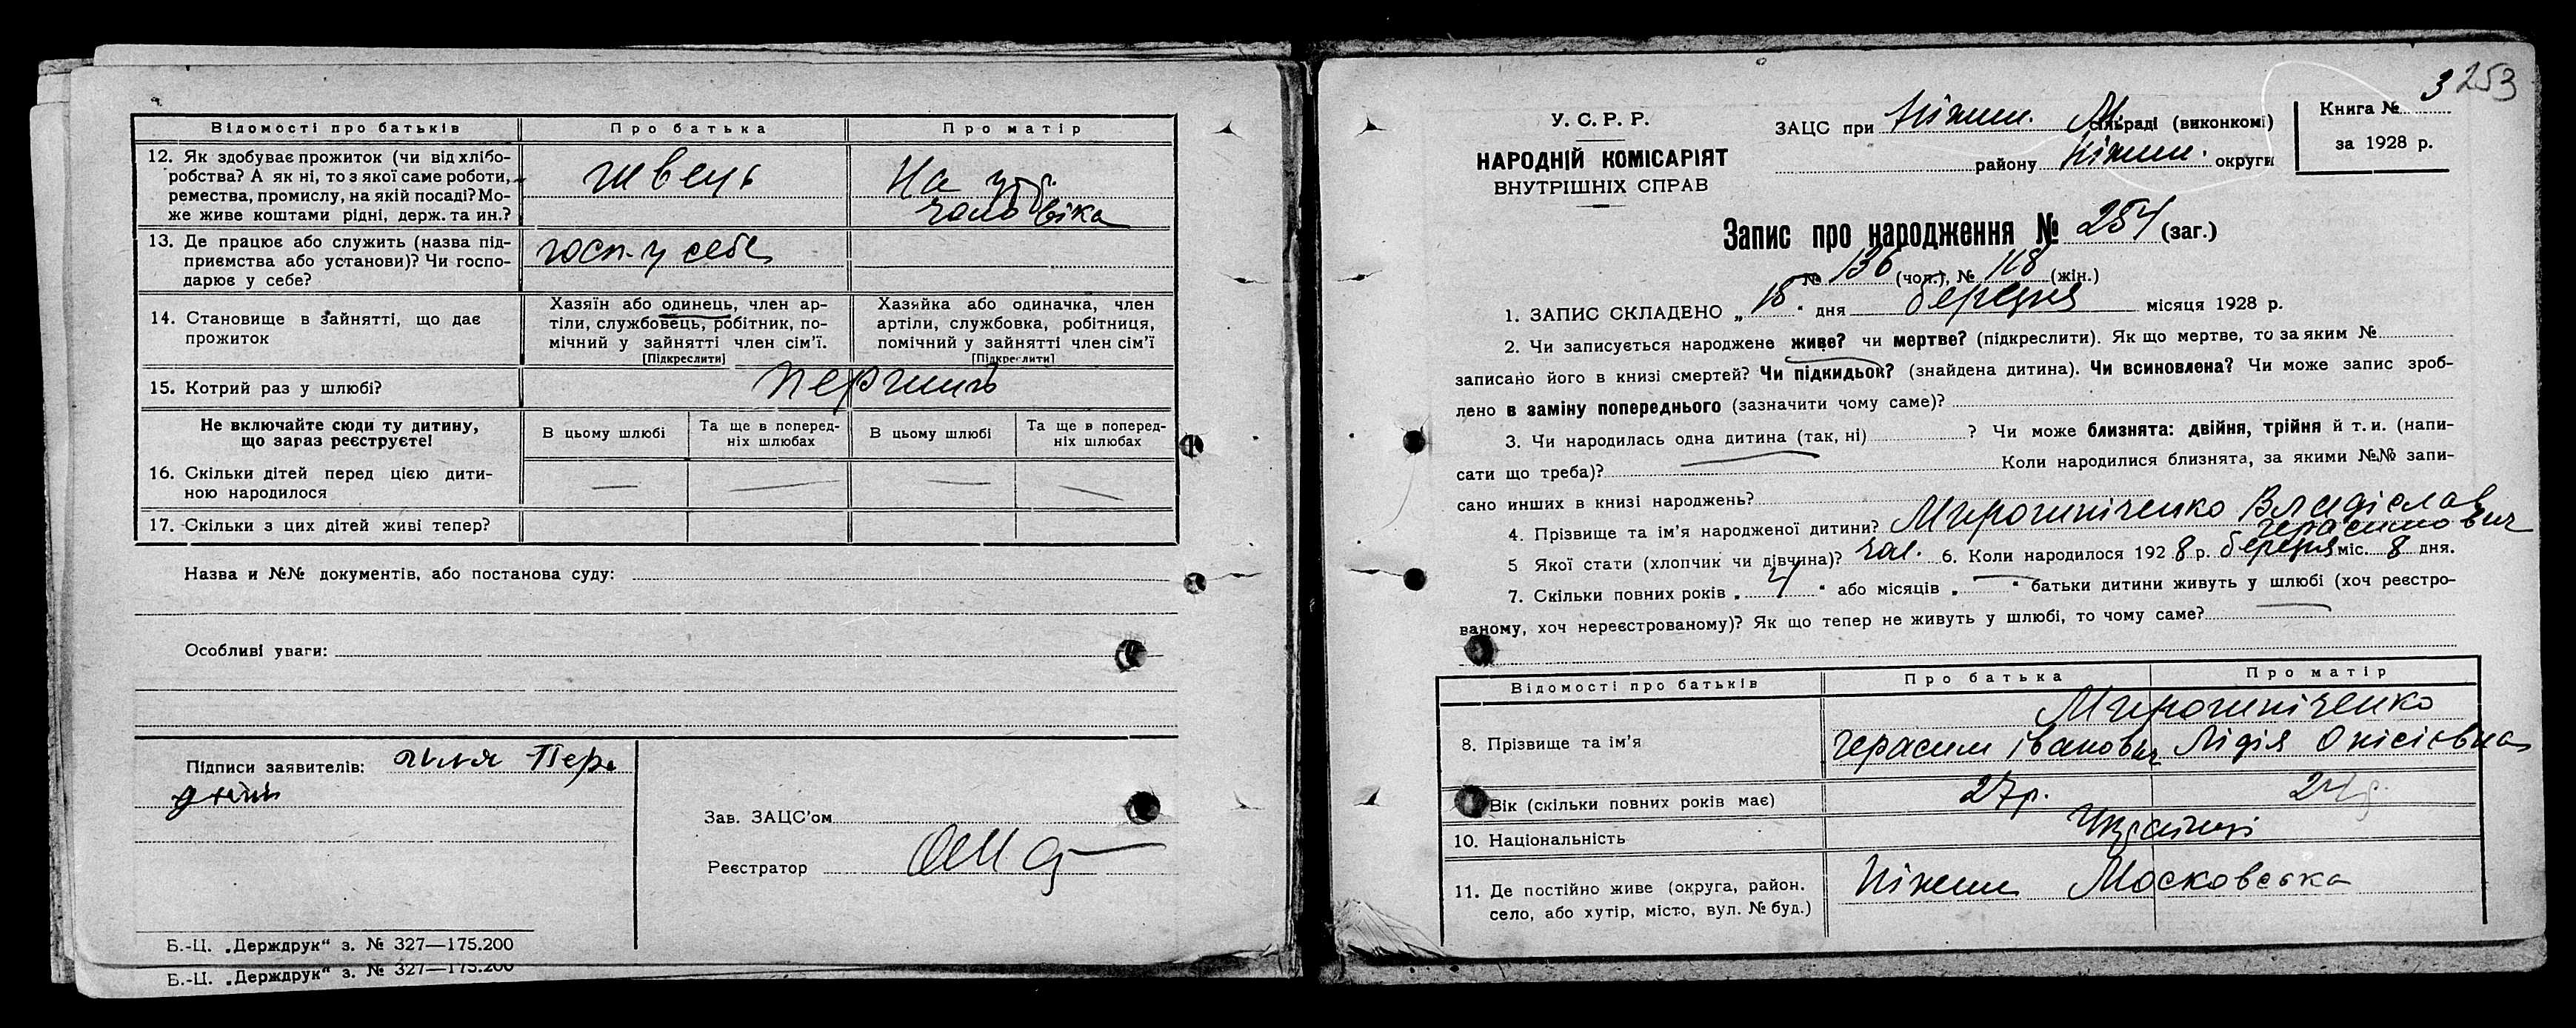 Відомості про батьків
Про батька
Про матір
12. Як здобуває прожиток (чи від хлібо-
робства? А як ні, то з якої саме роботи,
ремества, промислу, на якій посаді? Мо-
же живе коштами рідні, держ. та ин.?
швець
На утр.
чоловіка
13. Де працює або служить (назва під-
приємства або установи)? Чи госпо-
дарює у себе?
госп. у себе
14. Становище в зайнятті, що дає
прожиток
Хазяїн або одинець, член ар-
тіли, службовець, робітник, по-
мічний у зайнятті член сім’ї.
[Підкреслити]
Хазяйка або одиначка, член
артіли, службовка, робітниця,
помічний у зайнятті член сім’ї
[Підкреслити]
15. Котрий раз у шлюбі?
Не включайте сюди ту дитину,
що зараз реєструєте!
В цьому шлюбі
Та ще в поперед-
ніх шлюбах
В цьому шлюбі
Та ще в поперед-
ніх шлюбах
16. Скільки дітей перед цією дити-
ною народилося
— — — —
17. Скільки з цих дітей живі тепер?
Назва и №№ документів, або постанова суду:
Особливі уваги:
Підписи заявителів:
Зав. ЗАЦС’ом
Реєстратор
Б.-Ц. „Держдрук“ з. № 327—175.200
Б.-Ц. „Держдрук“ з. № 327—175.200
3 253
У. С. Р. Р.
НАРОДНІЙ КОМІСАРІЯТ
ВНУТРІШНІХ СПРАВ
ЗАЦС при Ніжин. М. сільраді (виконкомі)
району Ніжин. округи
Книга №
за 1928 р.
Запис про народження № 254 (заг.)
№ 136 (чол.), № 118 (жін.)
1. ЗАПИС СКЛАДЕНО „18“ дня березня місяця 1928 р.
2. Чи записується народжене живе? чи мертве? (підкреслити). Як що мертве, то за яким №
записано його в книзі смертей? Чи підкидьок? (знайдена дитина). Чи всиновлена? Чи може запис зроб-
лено в заміну попереднього (зазначити чому саме)?
3. Чи народилась одна дитина (так, ні) ? Чи може близнята: двійня, трійня й т. и. (напи-
сати що треба)? Коли народилися близнята, за якими №№ запи-
сано инших в книзі народжень?
4. Прізвище та ім’я народженої дитини? Мирошніченко Владіслав
Герасимович
5 Якої стати (хлопчик чи дівчина)? чол. 6. Коли народилося 1928 р. березня міс. 8 дня.
7. Скільки повних років „4“ або місяців „—“ батьки дитини живуть у шлюбі (хоч реєстро-
ваному, хоч нереєстрованому)? Як що тепер не живуть у шлюбі, то чому саме?
Відомості про батьків
Про батька
Про матір
8. Прізвище та ім’я
Мирошніченко
Герасим Іванович Лідія Онісієвна
Вік (скільки повних років має)
27 р.
24 р.
10. Національність
Українці
11. Де постійно живе (округа, район.
село, або хутір, місто, вул. № буд.)
Ніжин Московська